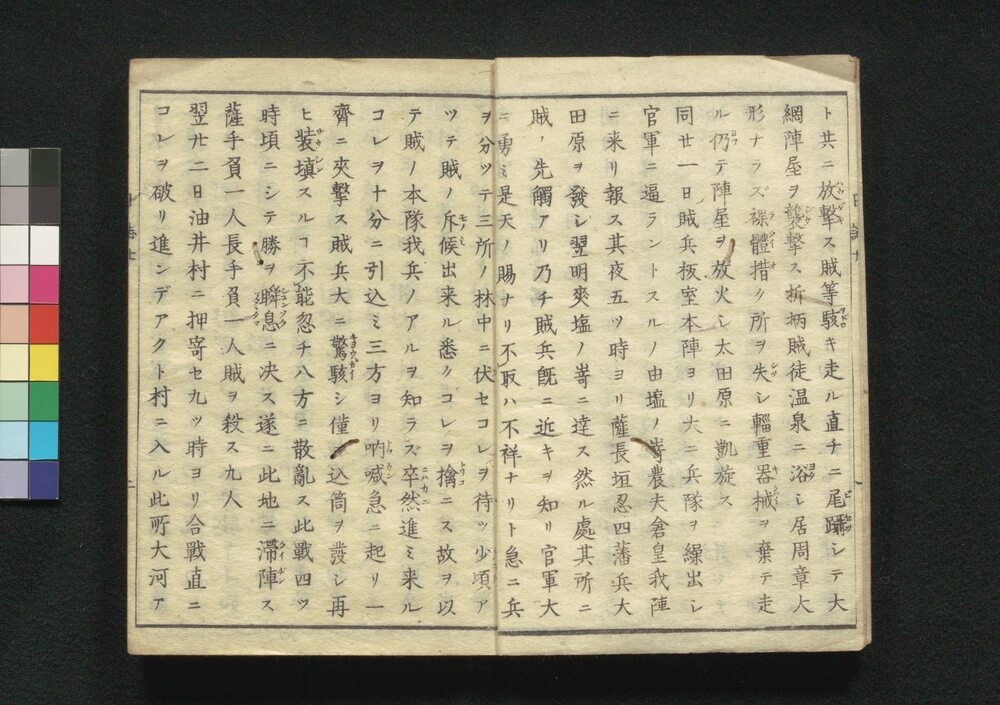 ト共ニ放撃ス賊等駭キ走ル直チニ尾躡シテ大
網陣屋ヲ襲撃ス折柄賊徒温泉ニ浴シ居周章大
形ナラズ裸體措ク所ヲ失シ輜重器械ヲ棄テ走
ル仍テ陣屋ヲ放火シ太田原ニ凱旋ス
同廿一日賊兵板室本陣ヨリ大ニ兵隊ヲ繰出シ
官軍ニ逼ラントスルノ由塩ノ嵜農夫倉皇我陣
ニ来リ報ス其夜五ツ時ヨリ薩長垣忍四藩兵大
田原ヲ發シ翌明爽塩ノ嵜ニ達ス然ル處其所ニ
賊ノ先觸アリ乃チ賊兵既ニ近キヲ知リ官軍大
ニ勇ミ是天ノ賜ナリ不取ハ不祥ナリト急ニ兵
ヲ分ツテ三所ノ林中ニ伏セコレヲ待ツ少頃ア
ツテ賊ノ斥候出来ル悉クコレヲ擒ニス故ヲ以
テ賊ノ本隊我兵ノアルヲ知ラズ卒然進ミ来ル
コレヲ十分ニ引込ミ三方ヨリ吶喊急ニ起リ一
齊ニ夾撃ス賊兵大ニ驚駭シ僅ニ込筒ヲ發シ再
ヒ装填スルコ不能忽チ八方ニ散亂ス此戰四ツ
時頃ニシテ勝ヲ瞬息ニ决ス遂ニ此地ニ滯陣ス
薩手負一人長手負一人賊ヲ殺ス九人
翌廿二日油井村ニ押寄セ九ツ時ヨリ合戰直ニ
コレヲ破リ進ンデアクト村ニ入ル此所大河ア